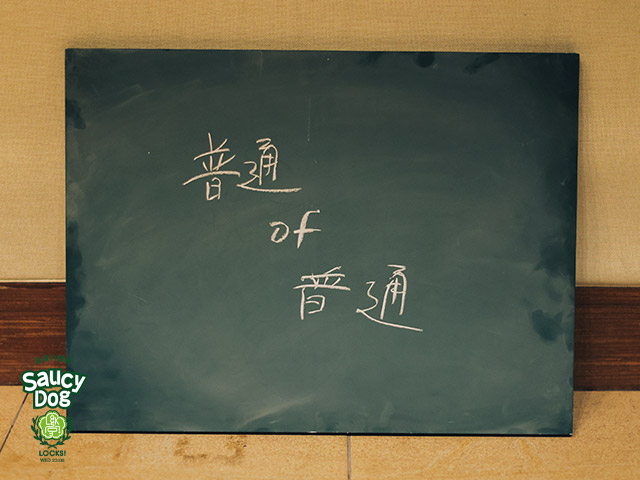 普通
of
普通
SAUCY
DOG
LOCKS!